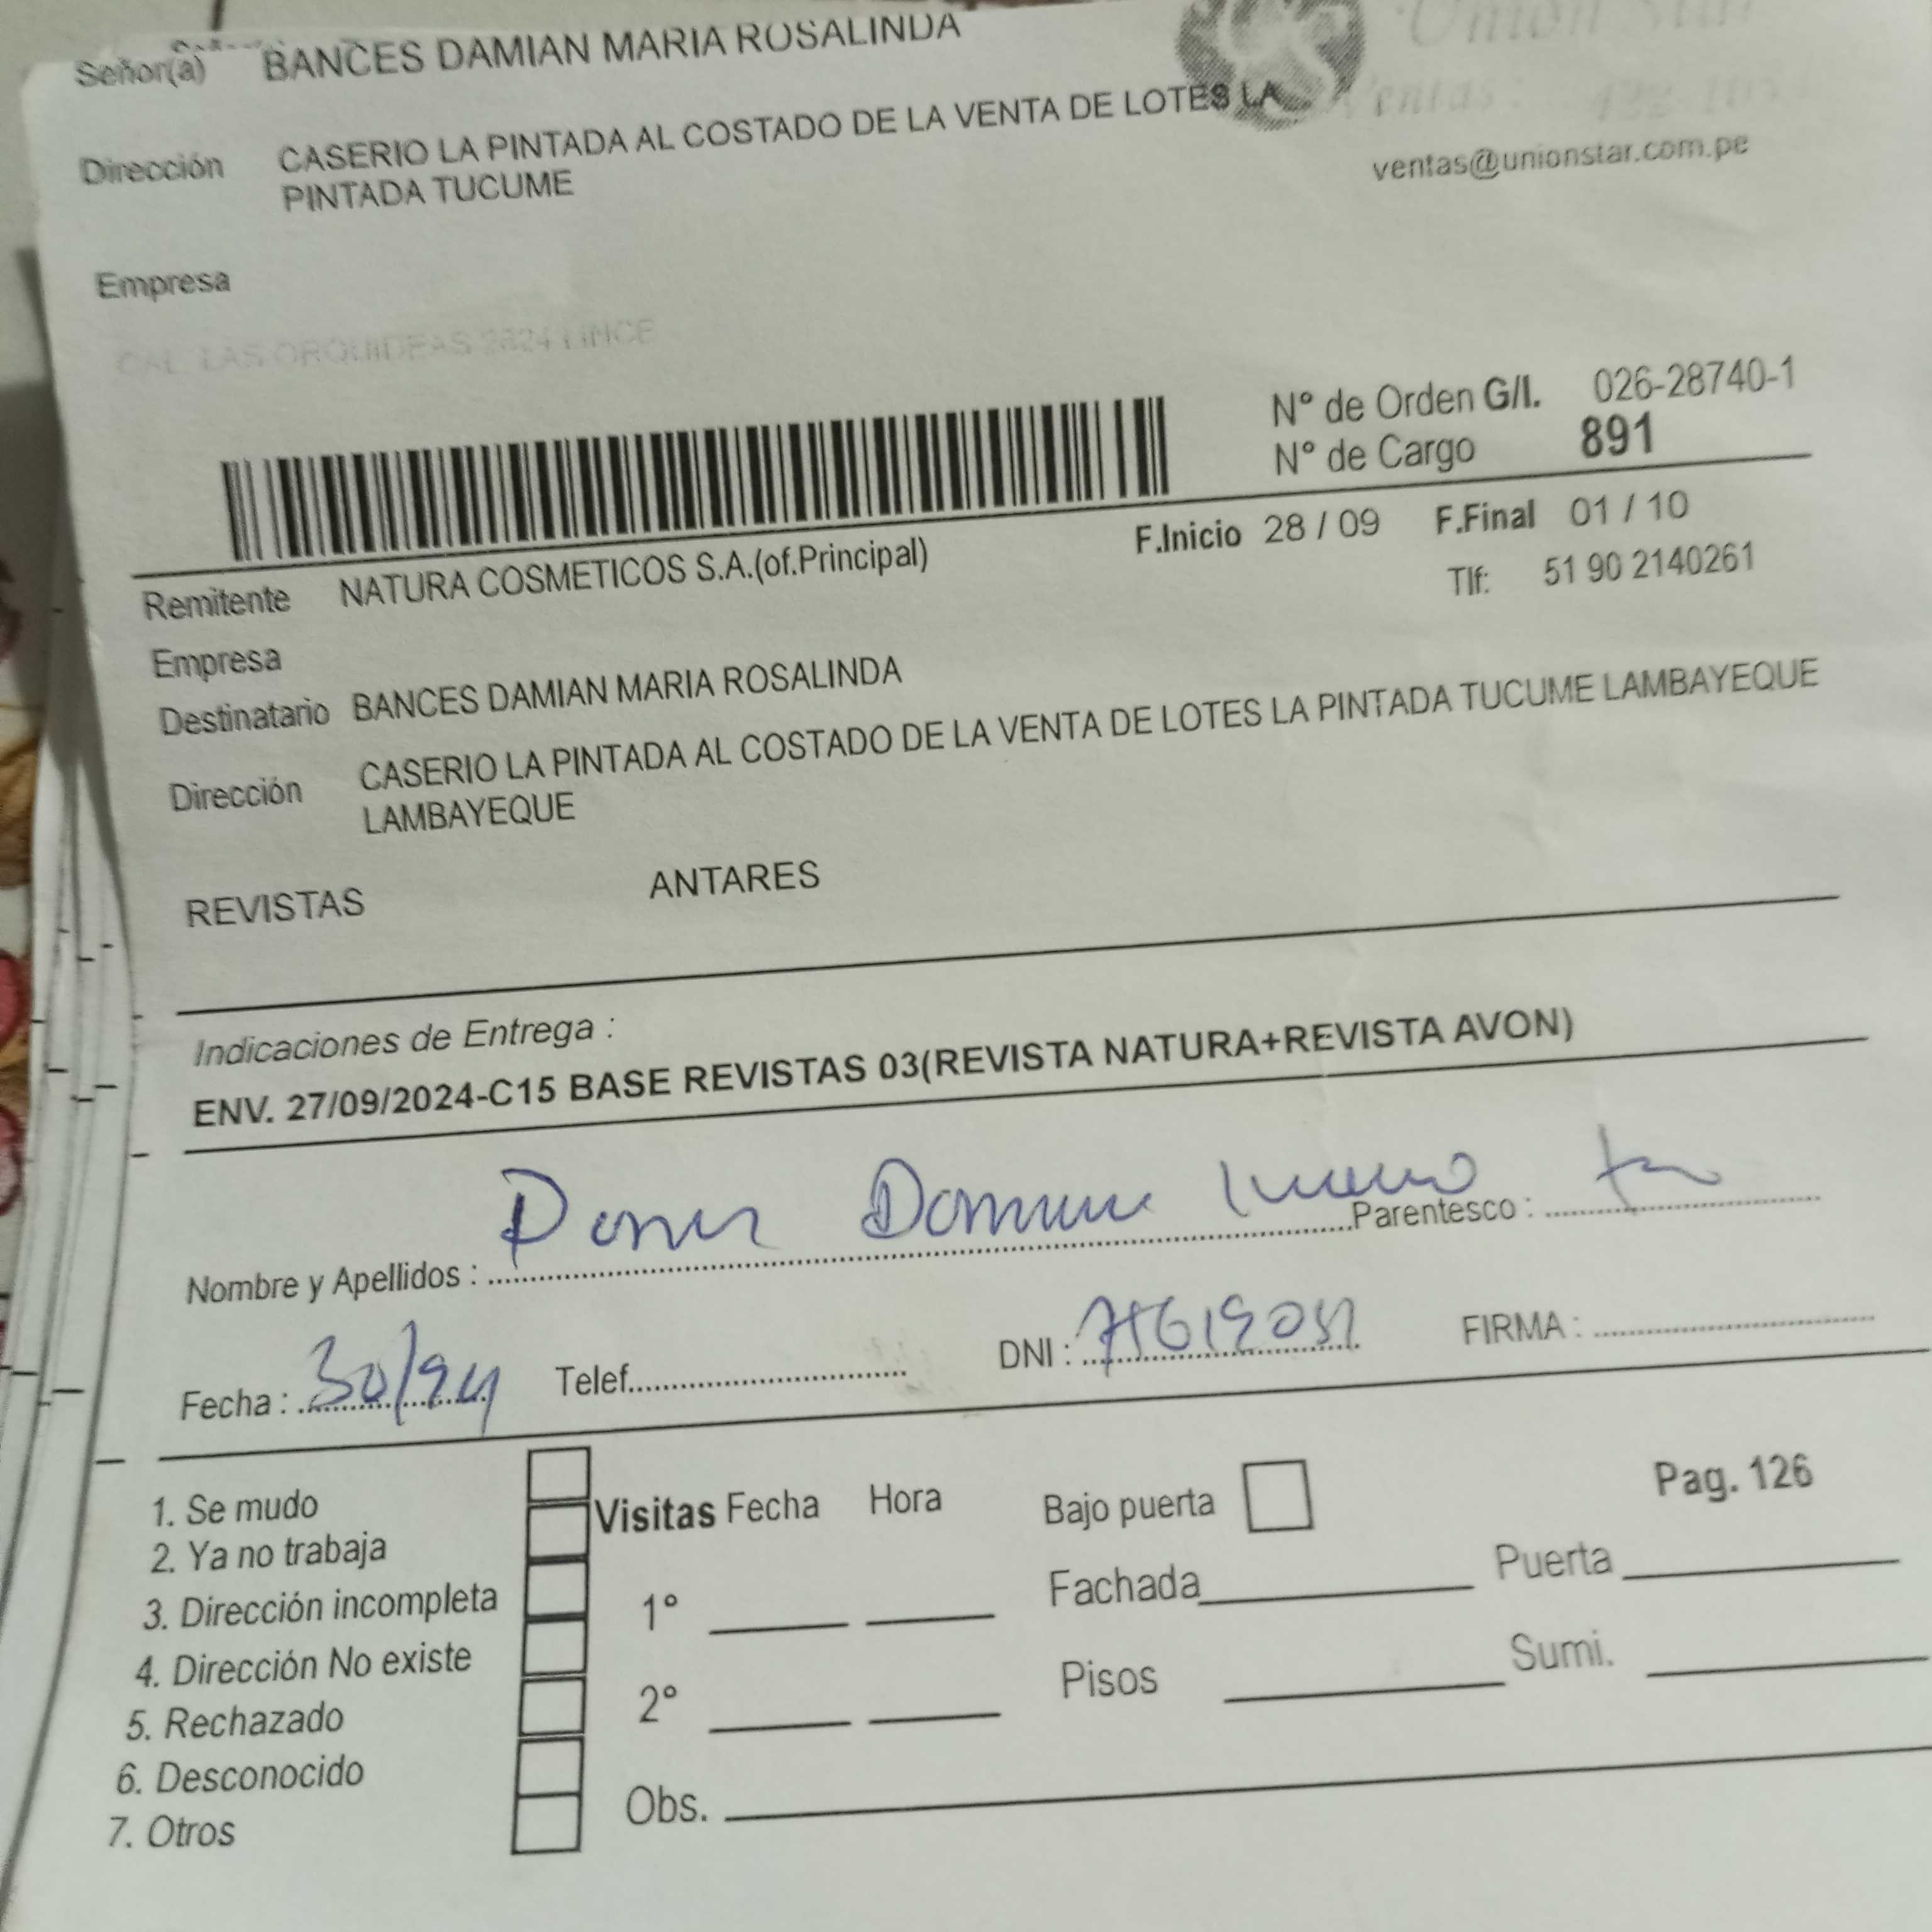 Señor(a) BANCES DAMIAN MARIA ROSALINDA
Union Star
Dirección CASERIO LA PINTADA AL COSTADO DE LA VENTA DE LOTES LA
PINTADA TUCUME
Ventas:
ventas@unionstar.com.pe
Empresa
CAL. LAS ORQUIDEAS 2624 LINCE
N° de Orden G/I. 026-28740-1
N° de Cargo 891
F.Inicio 28 / 09 F.Final 01 / 10
Remitente NATURA COSMETICOS S.A.(of.Principal)
Tlf: 51 90 2140261
Empresa
Destinatario BANCES DAMIAN MARIA ROSALINDA
Dirección CASERIO LA PINTADA AL COSTADO DE LA VENTA DE LOTES LA PINTADA TUCUME LAMBAYEQUE
LAMBAYEQUE
REVISTAS ANTARES
Indicaciones de Entrega :
ENV. 27/09/2024-C15 BASE REVISTAS 03(REVISTA NATURA+REVISTA AVON)
Nombre y Apellidos : Parentesco :
Fecha : 30/ Telef. DNI : FIRMA :
1. Se mudo
2. Ya no trabaja
3. Dirección incompleta
4. Dirección No existe
5. Rechazado
6. Desconocido
7. Otros
Visitas Fecha Hora
1°
2°
Obs.
Bajo puerta
Pag. 126
Fachada Puerta
Pisos Sumi.